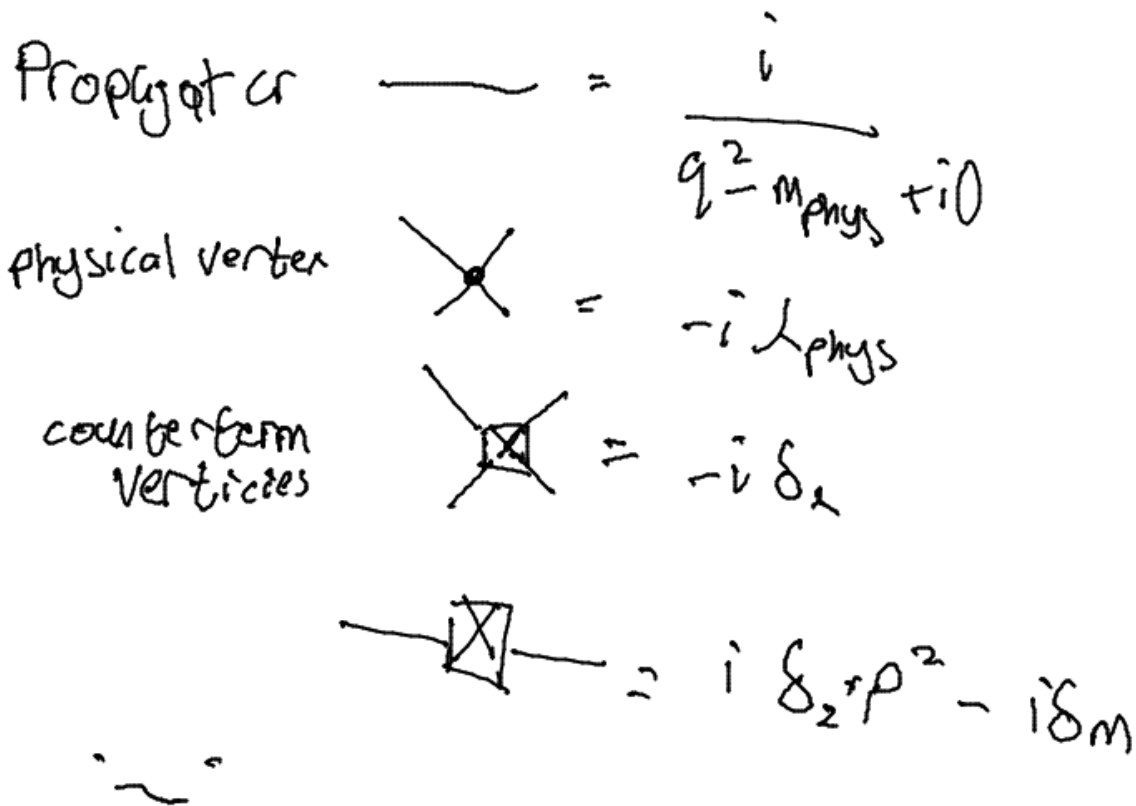 Propagator = i / q² - m_phys + i0
physical vertex = -i λ_phys
counterterm = -i δ_λ
verticies
= i δ_2 · p² - i δ_M